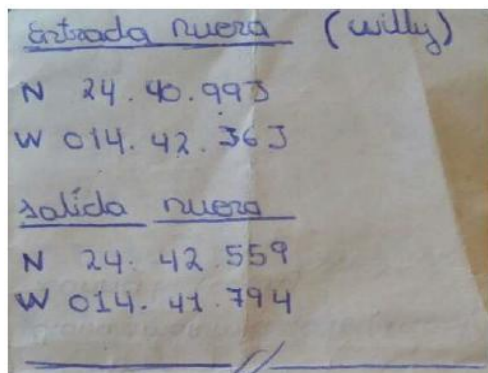 entrada nueva (willy)
N 24.40.993
W 014.42.363
salida nueva
N 24.42.559
W 014.41.794